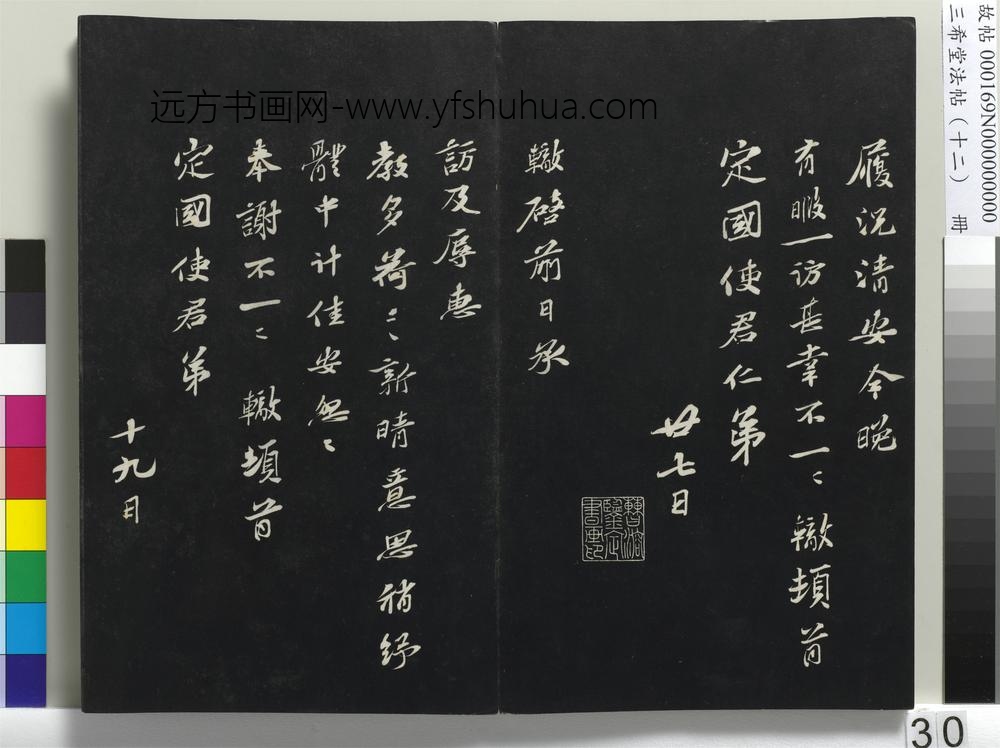 远方书画网-www.yfshuhua.com
故帖 000169N000000000
三希堂法帖（十二） 冊
履況清安今晚
有暇一訪甚幸不一〻 轍頓首
定國使君仁弟
廿七日
轍啓前日承
訪及辱惠
教多荷〻新晴意思稍紓
體中計佳安怱〻
奉謝不一〻 轍頓首
定國使君弟
十九日
30